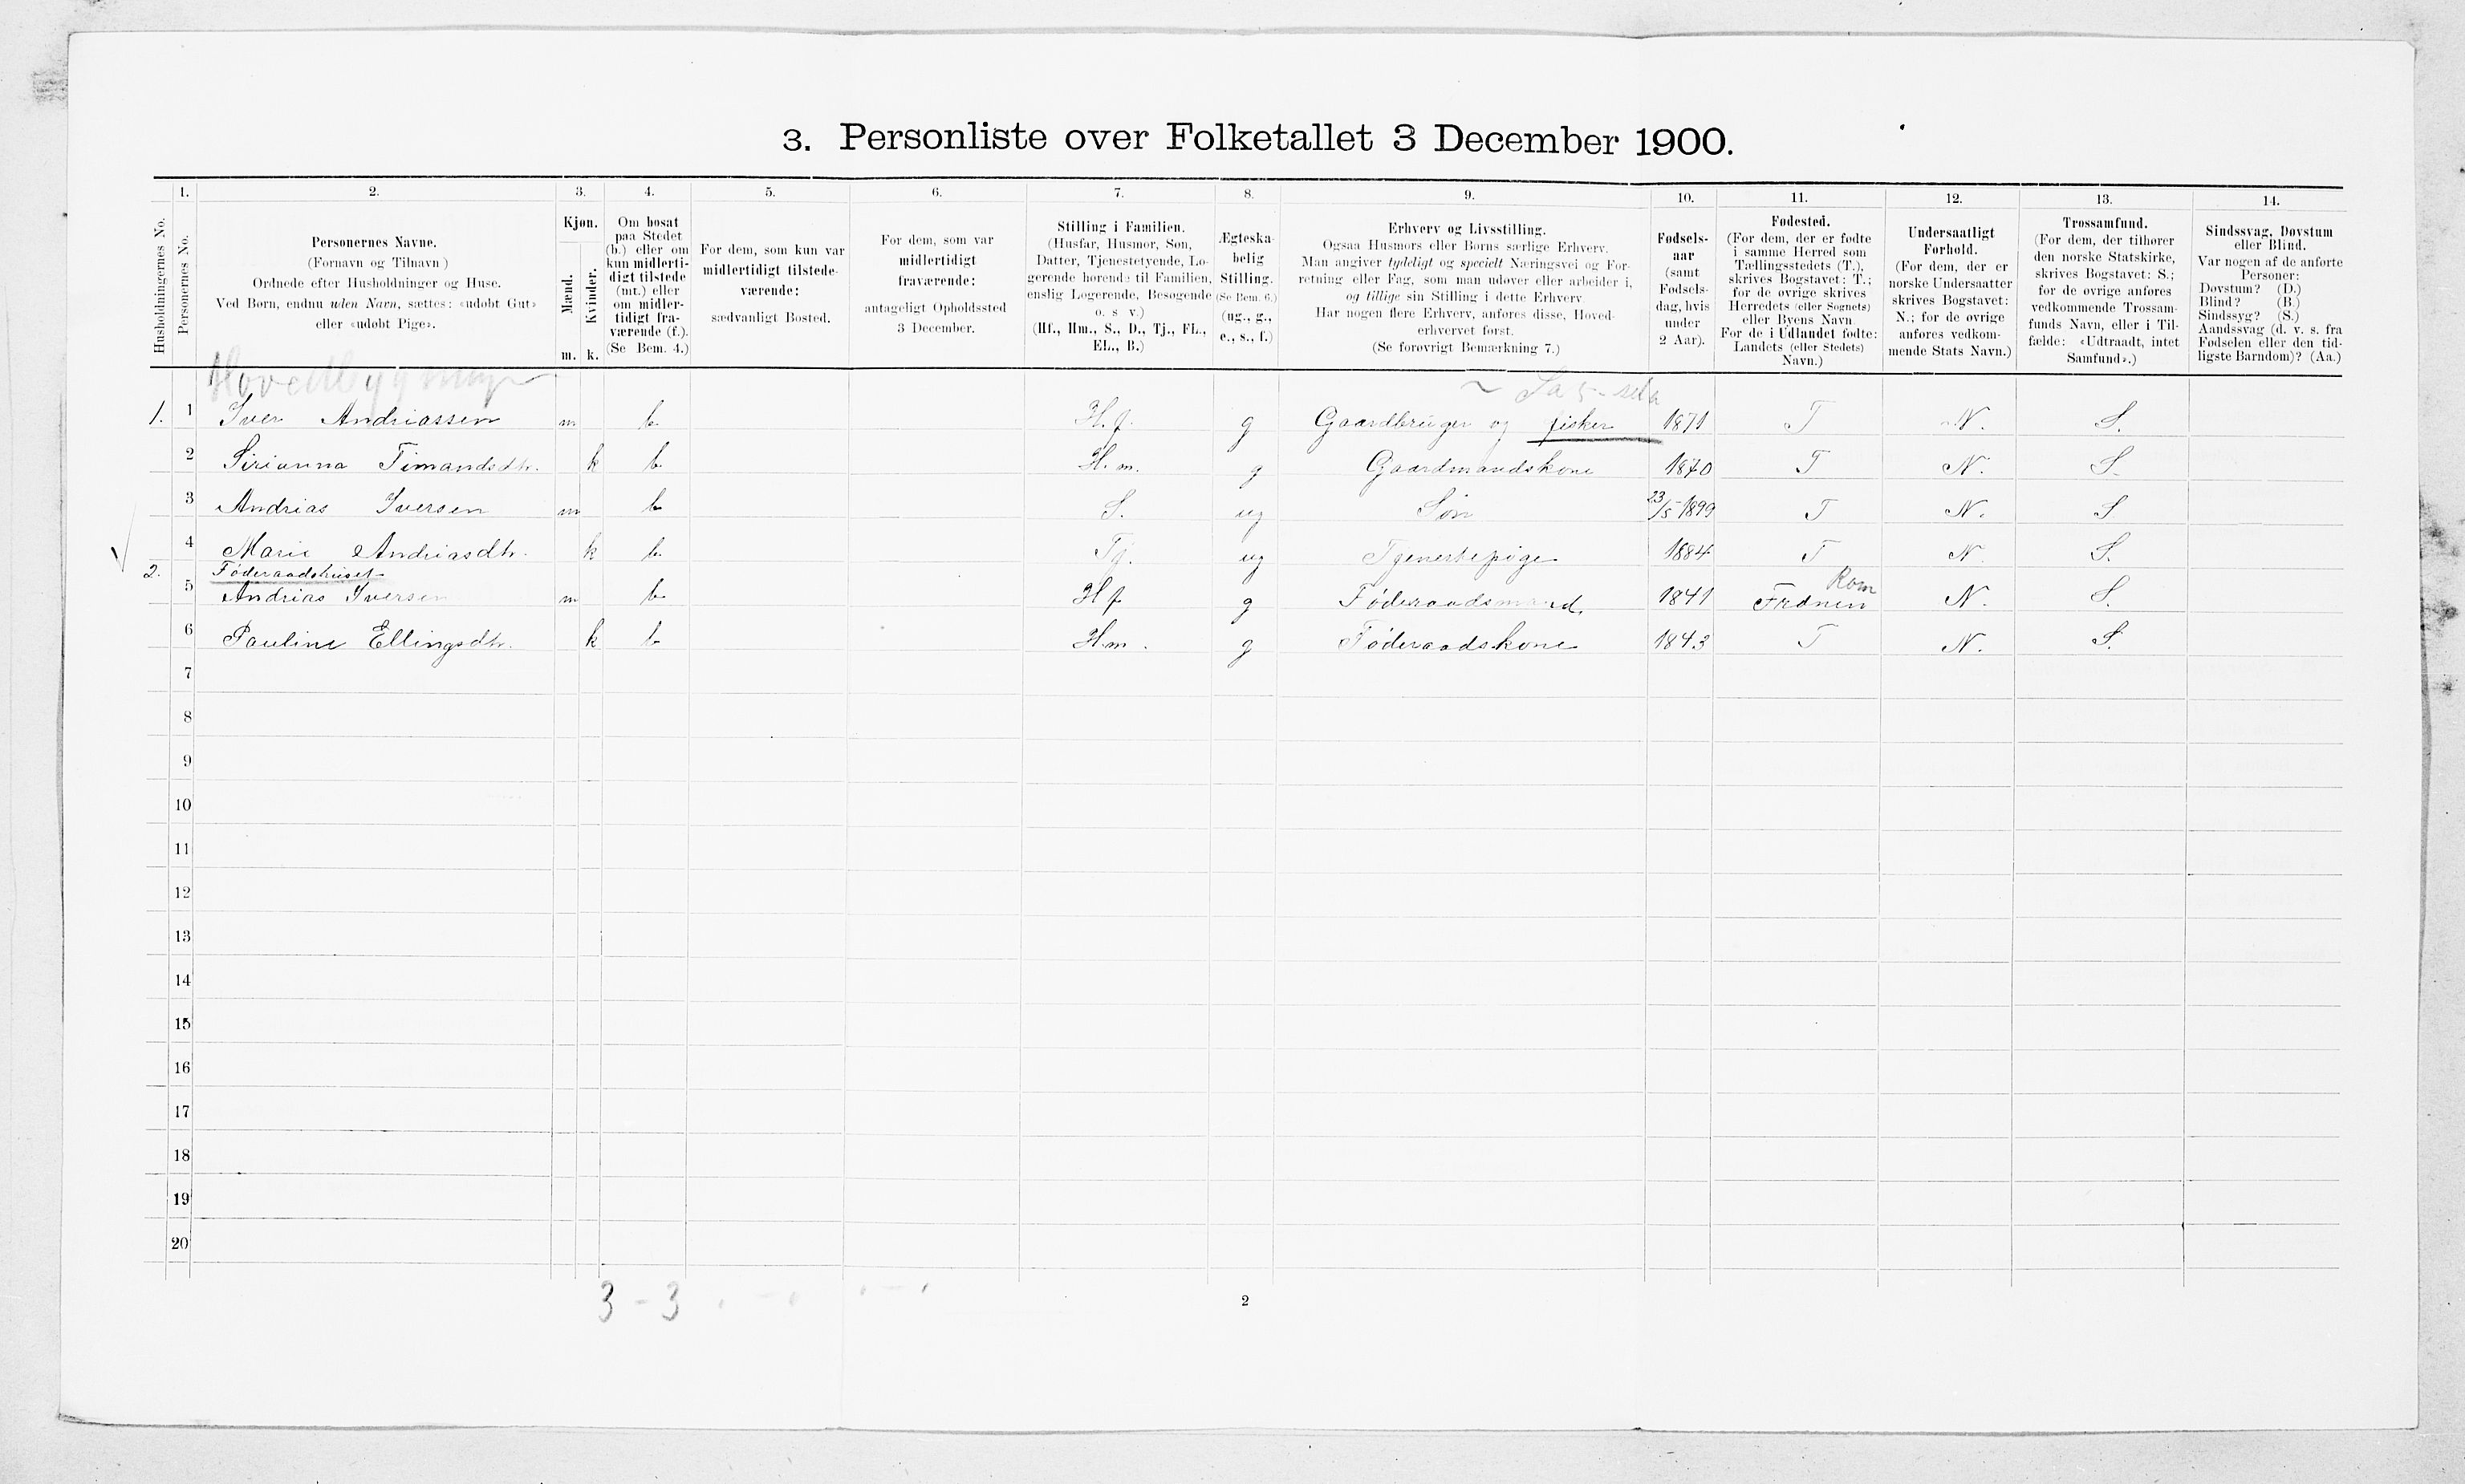 3. Personliste over Folketallet 3 December 1900.
1. 2. 3. 4. 5. 6. 7. 8. 9. 10. 11. 12. 13. 14.
Husholdningernes No.
Personernes No.
Personernes Navne.
(Fornavn og Tilnavn)
Ordnede efter Husholdninger og Huse.
Ved Børn, endnu uden Navn, sættes: «udøbt Gut»
eller «udøbt Pige».
Kjøn.
Mænd.
Kvinder.
m. k.
Om bosat
paa Stedet
(b.) eller om
kun midlerti-
digt tilstede
(mt.) eller
om midler-
tidigt fra-
værende (f.).
(Se Bem. 4.)
For dem, som kun var
midlertidigt tilstede-
værende:
sædvanligt Bosted.
For dem, som var
midlertidigt
fraværende:
antageligt Opholdssted
3 December.
Stilling i Familien.
(Husfar, Husmor, Søn,
Datter, Tjenestetyende, Lo-
gerende hørende til Familien,
enslig Logerende, Besøgende
o. s. v.)
(Hf., Hm., S., D., Tj., FL.,
EL., B.)
Ægteska-
belig
Stilling.
(Se Bem. 6.)
(ug., g.,
e., s., f.)
Erhverv og Livsstilling.
Ogsaa Husmors eller Børns særlige Erhverv.
Man angiver tydeligt og specielt Næringsvei og For-
retning eller Fag, som man udøver eller arbeider i,
og tillige sin Stilling i dette Erhverv.
Har nogen flere Erhverv, anføres disse, Hoved-
erhvervet først.
(Se forøvrigt Bemærkning 7.)
Fødsels-
aar
(samt
Fødsels-
dag, hvis
under
2 Aar).
Fødested.
(For dem, der er fødte
i samme Herred som
Tællingsstedets (T.),
skrives Bogstavet: T.;
for de øvrige skrives
Herredets (eller Sognets)
eller Byens Navn.
For de i Udlandet fødte:
Landets (eller Stedets)
Navn.)
Undersaatligt
Forhold.
(For dem, der er
norske Undersaatter
skrives Bogstavet:
N.; for de øvrige
anføres vedkom-
mende Stats Navn.)
Trossamfund.
(For dem, der tilhører
den norske Statskirke,
skrives Bogstavet: S.;
for de øvrige anføres
vedkommende Trossam-
funds Navn, eller i Til-
fælde: «Udtraadt, intet
Samfund».)
Sindssvag, Døvstum
eller Blind.
Var nogen af de anførte
Personer:
Døvstum? (D.)
Blind? (B.)
Sindssyg? (S.)
Aandssvag (d. v. s. fra
Fødselen eller den tid-
ligste Barndom)? (Aa.)
Hovedbygning
1. 1 Iver Andriassen m b H.f. g Gaardbruger og fisker 1871 T N. S.
2 Sirianna Timandsdtr. k b H.m. g Gaardmandskone 1870 T N. S.
3 Andrias Iversen m b S. ug Søn 23/5 1899 T N. S
4 Marie Andriasdtr. k b Tj. ug Tjenestepige 1884 T N. S.
2. Føderaadshuset Rom
5 Andrias Iversen m b Hf g Føderaadsmand. 1841 Frænen N. S.
6 Pauline Ellingsdtr. k b H.m. g Føderaadskone 1843 T N. S.
7
8
9
10
11
12
13
14
15
16
17
18
19
20
3 - 3
2